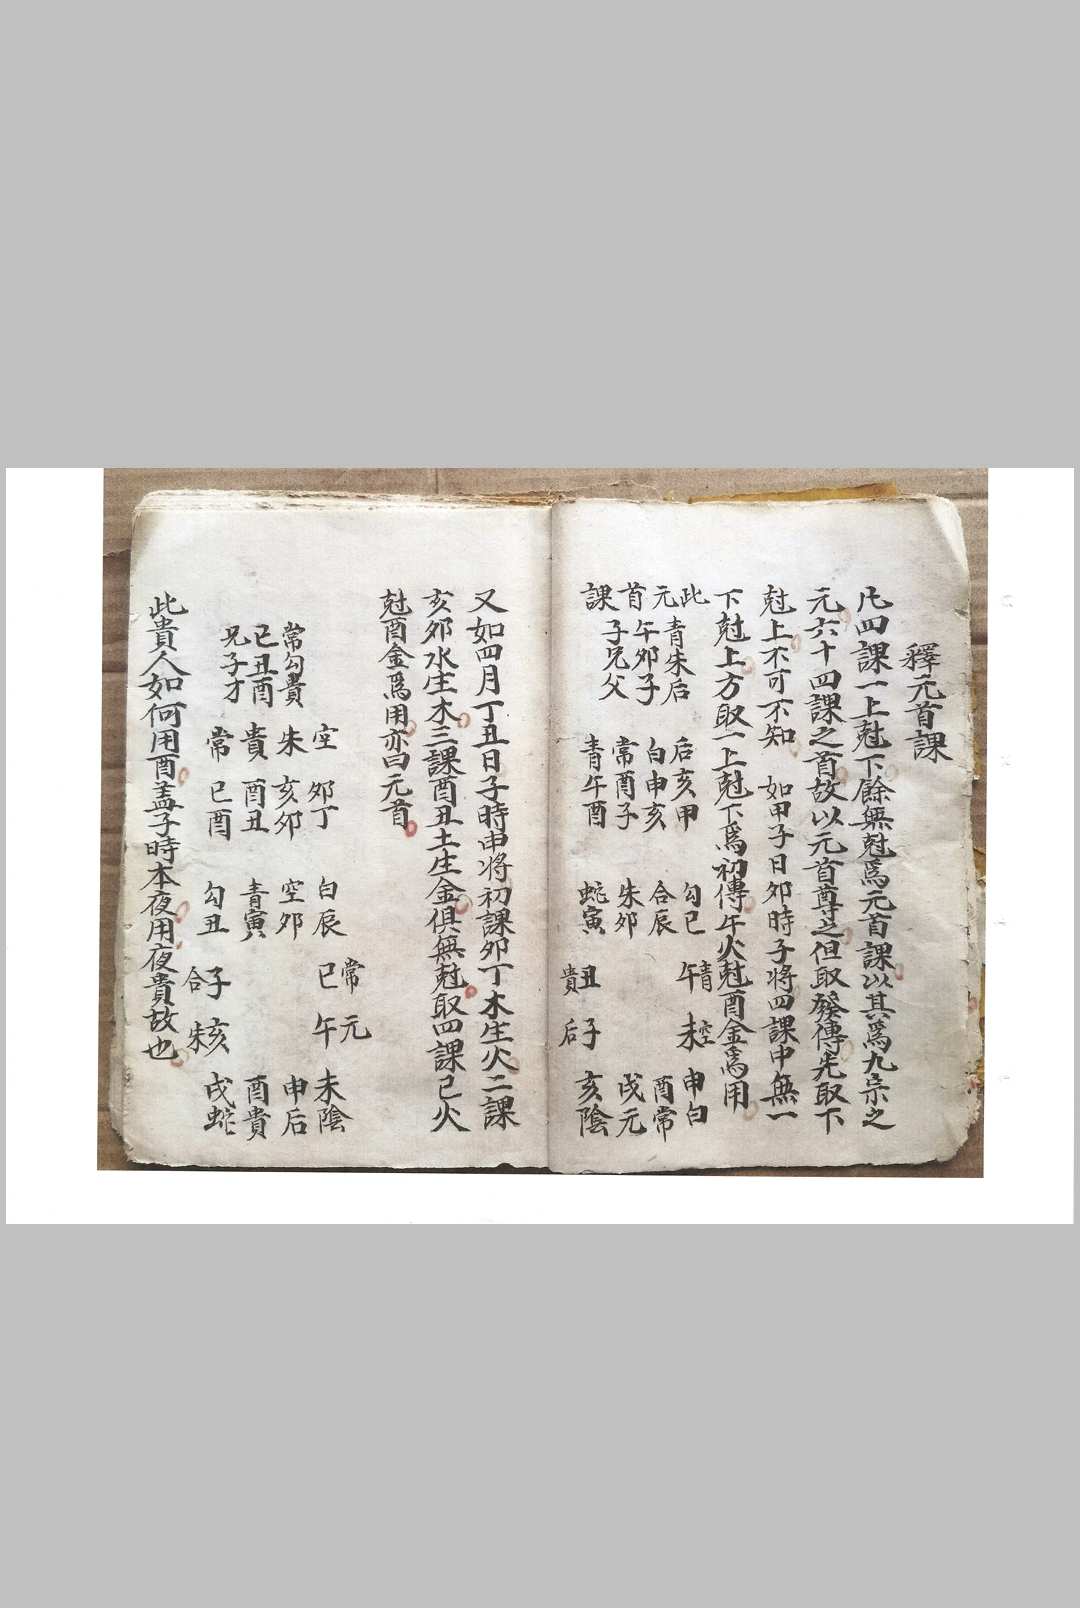 釋元首課
凡四課一上尅下餘無尅爲元首課以其爲九宗之
元六十四課之首故以元首尊之但取發傳先取下
尅上不可不知 如甲子日卯時子將四課中無一
下尅上方取一上尅下爲初傳午火尅酉金爲用
此元首課
青朱后
午卯子
子兄父
后亥甲
白申亥
常酉子
青午酉
勾巳 午青 未空 申白
合辰 酉常
朱卯 戌元
蛇寅 丑貴 子后 亥陰
又如四月丁丑日子時申將初課卯丁木生火二課
亥卯水生木三課酉丑土生金俱無尅取四課巳火
尅酉金爲用亦曰元首
常勾貴
巳丑酉
兄子才
空 卯丁
朱 亥卯
貴 酉丑
常 巳酉
白辰 巳常 午元 未陰
空卯 申后
青寅 酉貴
勾丑 子合 亥朱 戌蛇
此貴人如何用酉蓋子時本夜用夜貴故也